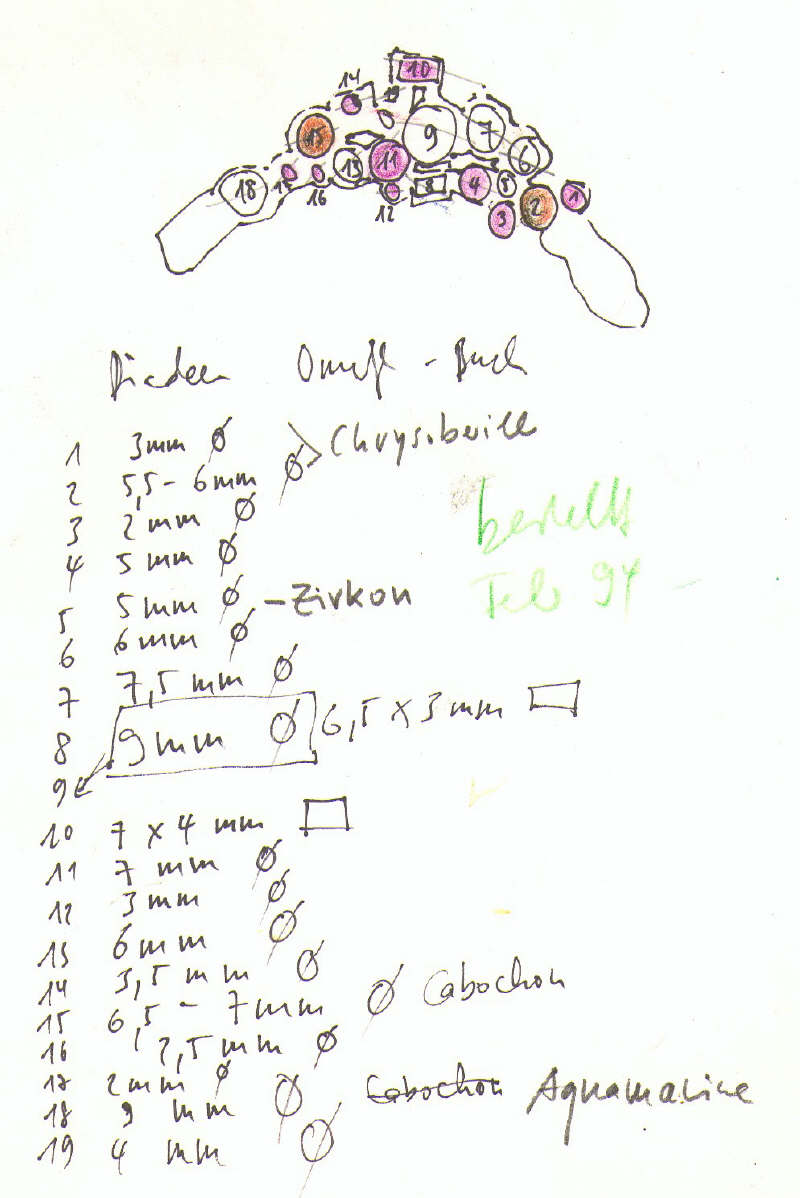 10
14
19
15
9
7
6
13
11
18
17
16
12
8
4
5
3
2
1
Diadem - Buch
1 3mm Ø
> Chrysoberille
2 5,5 - 6mm Ø
3 2mm Ø
4 5mm Ø
bestellt
5 5mm Ø - Zirkon
Feb 94
6 6mm Ø
7 7,5 mm Ø
8 9mm Ø 6,5 x 3mm
9
10 7 x 4 mm
11 7 mm Ø
12 3mm Ø
13 6mm Ø
14 3,5 mm Ø
15 6,5 - 7mm Ø Cabochon
16 2,5mm Ø
17 2mm Ø
18 9 mm Ø Cabochon Aquamarine
19 4 mm Ø